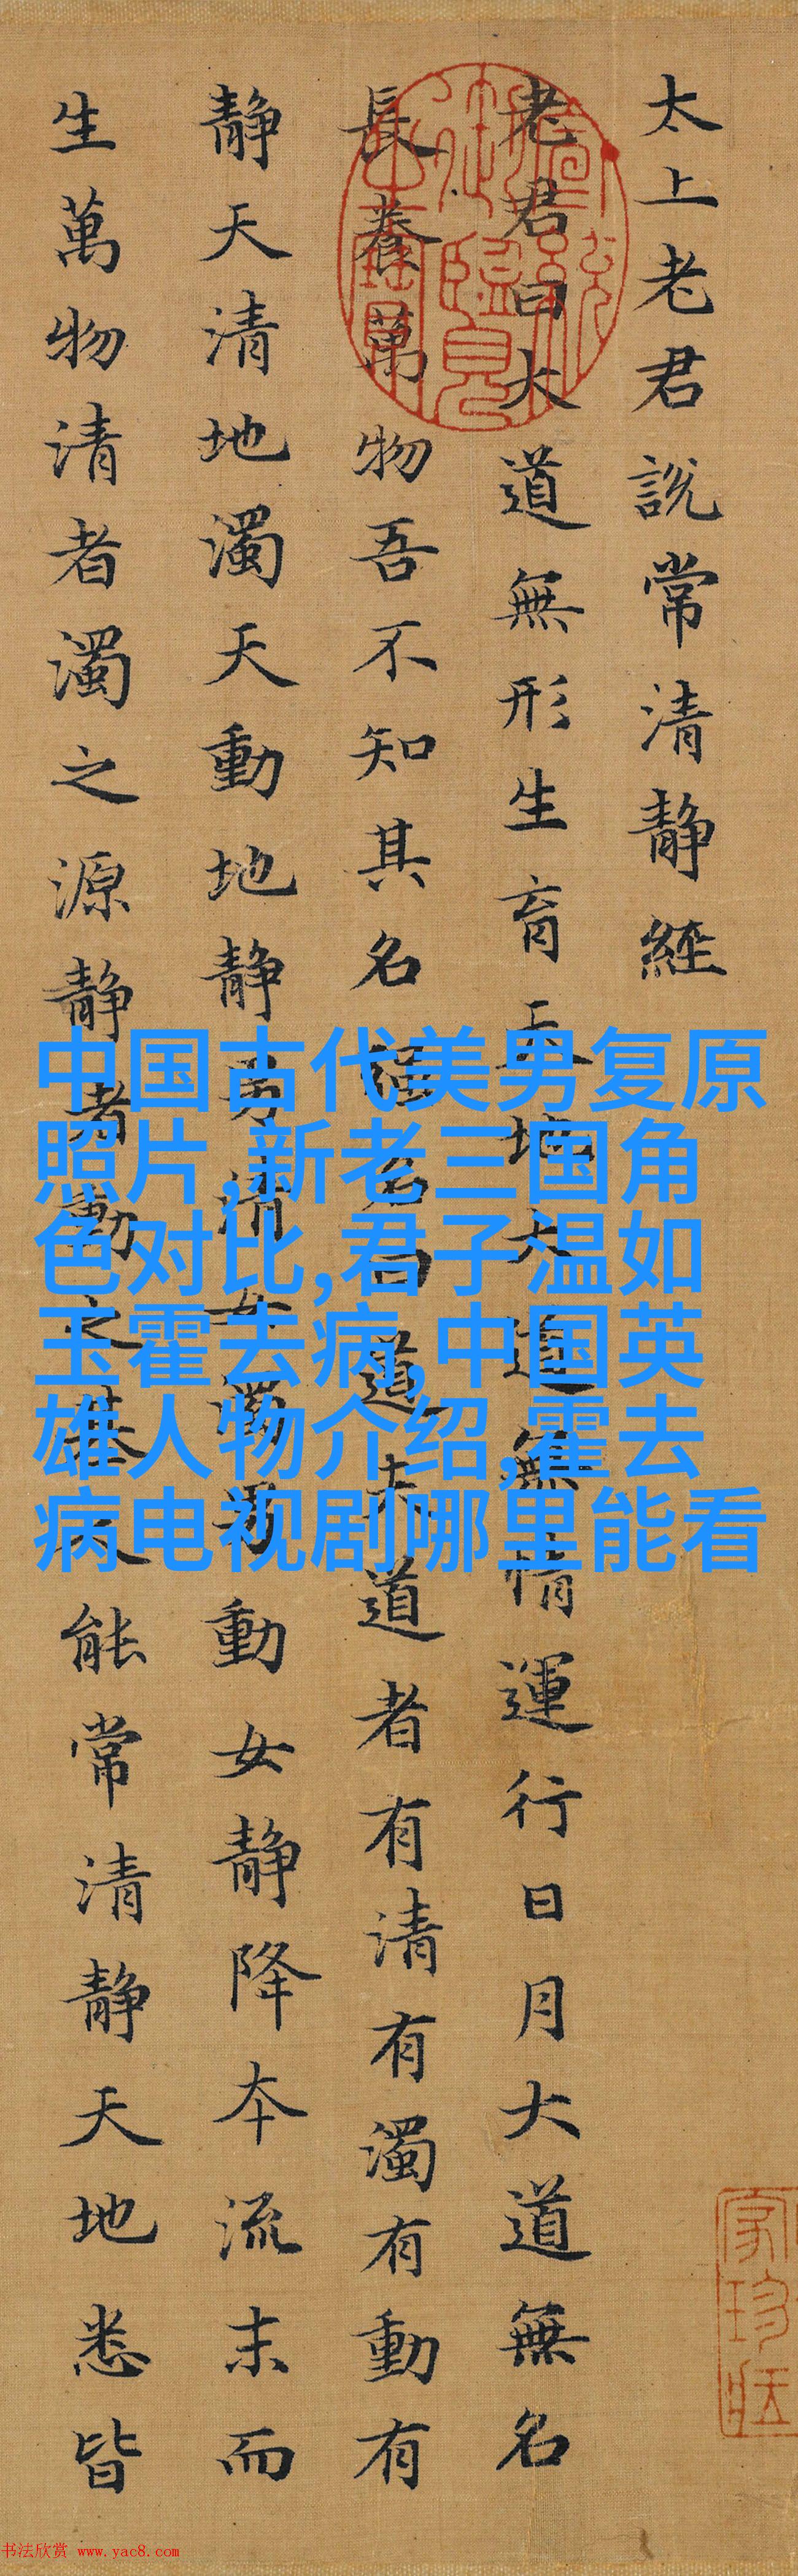 太上老君說常清靜經
老君曰大道無形生育天地大道無情運行日月大道無名
長養萬物吾不知其名強名曰道夫道者有清有濁有動有
靜天清地濁天動地靜男清女濁男動女靜降本流末而
生萬物清者濁之源靜者動之基人能常清靜天地悉皆
中国古代美男复原
照片,新老三国角
色对比,君子温如
玉霍去病,中国英
雄人物介绍,霍去
病电视剧哪里能看
书法欣赏 www.yac8.com